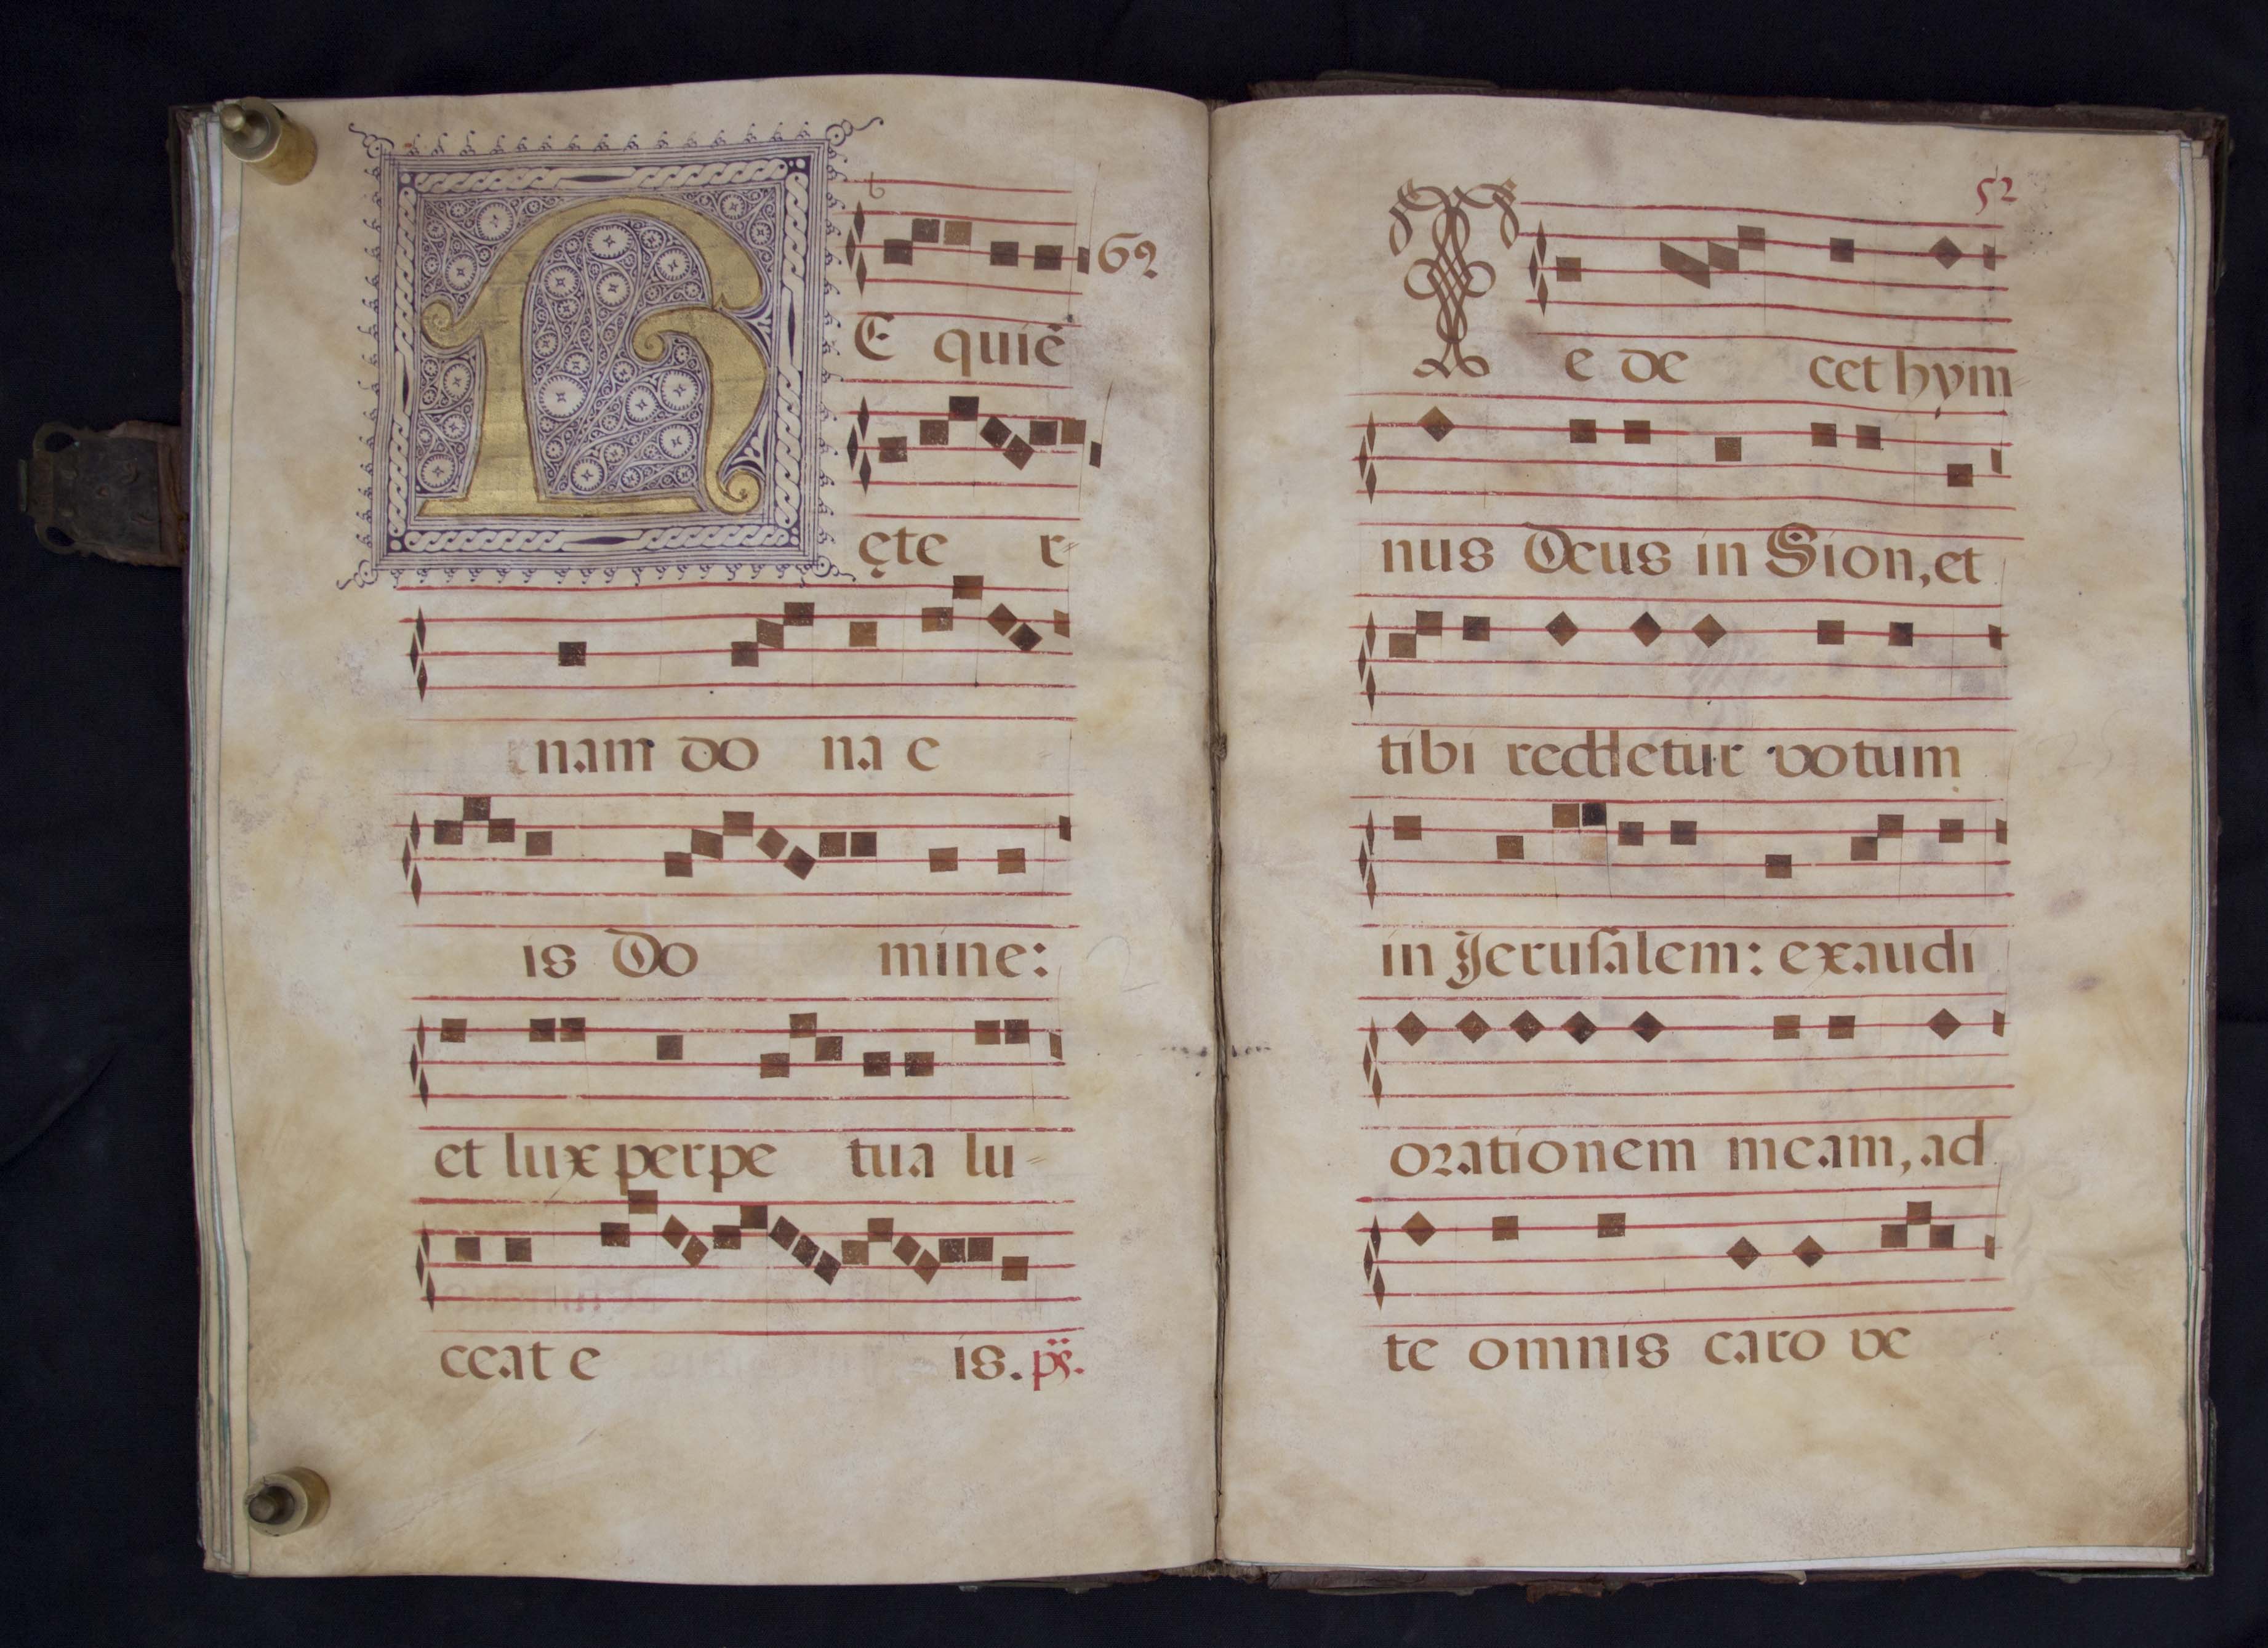 R E quiē 62
ęte r=
nam do na e
is Do mine:
et lux perpe tua lu=
ceat e is. ps.
52
T e de cet hym=
nus Deus in Sion, et
tibi reddetur votum
in Jeruſalem: exaudi
orationem meam, ad
te omnis caro ve